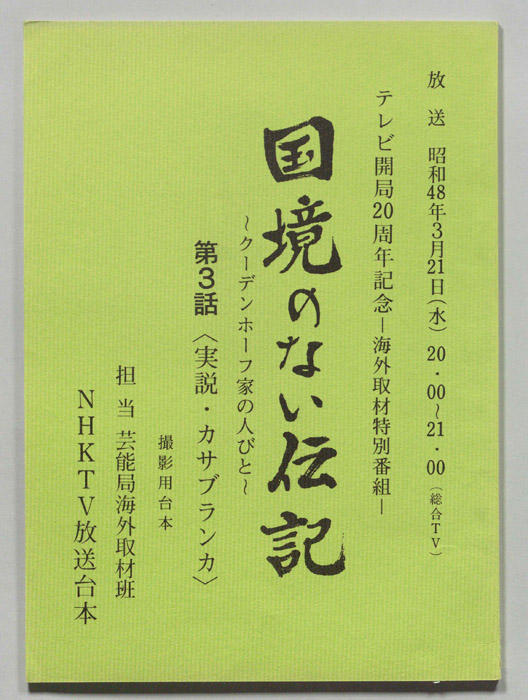 放送 昭和48年3月21日(水) 20・00~21・00(総合TV)
テレビ開局20周年記念―海外取材特別番組―
国境のない伝記
~クーデンホーフ家の人びと~
第3話〈実説・カサブランカ〉
撮影用台本
担当 芸能局海外取材班
NHKTV放送台本